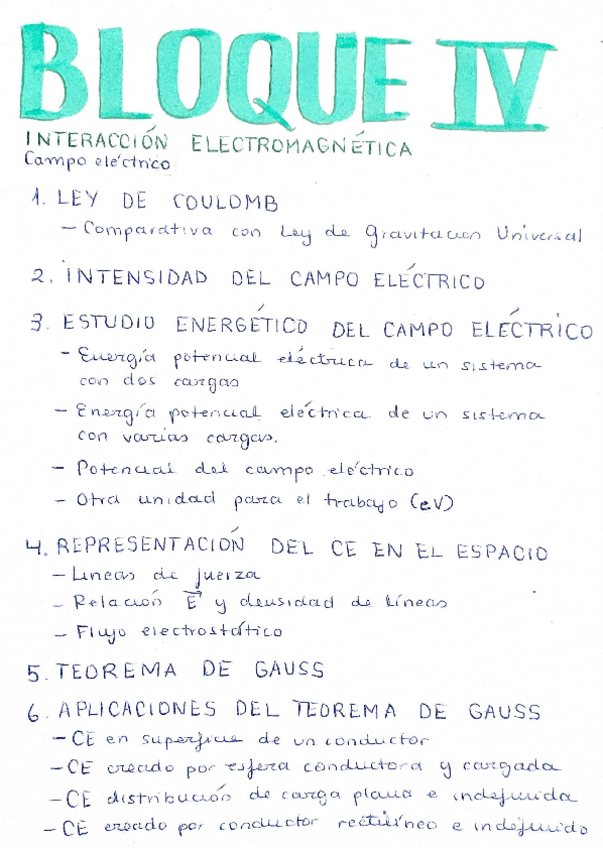 BLOQUE IV
INTERACCIÓN ELECTROMAGNÉTICA
Campo eléctrico
1. LEY DE COULOMB
- Comparativa con Ley de Gravitación Universal
2. INTENSIDAD DEL CAMPO ELÉCTRICO
3. ESTUDIO ENERGÉTICO DEL CAMPO ELÉCTRICO
- Energía potencial eléctrica de un sistema
con dos cargas
- Energía potencial eléctrica de un sistema
con varias cargas.
- Potencial del campo eléctrico
- Otra unidad para el trabajo (eV)
4. REPRESENTACIÓN DEL CE EN EL ESPACIO
- Líneas de fuerza
- Relación E⃗ y densidad de líneas
- Flujo electrostático
5. TEOREMA DE GAUSS
6. APLICACIONES DEL TEOREMA DE GAUSS
- CE en superficie de un conductor
- CE creado por esfera conductora y cargada
- CE distribución de carga plana e indefinida
- CE creado por conductor rectilíneo e indefinido